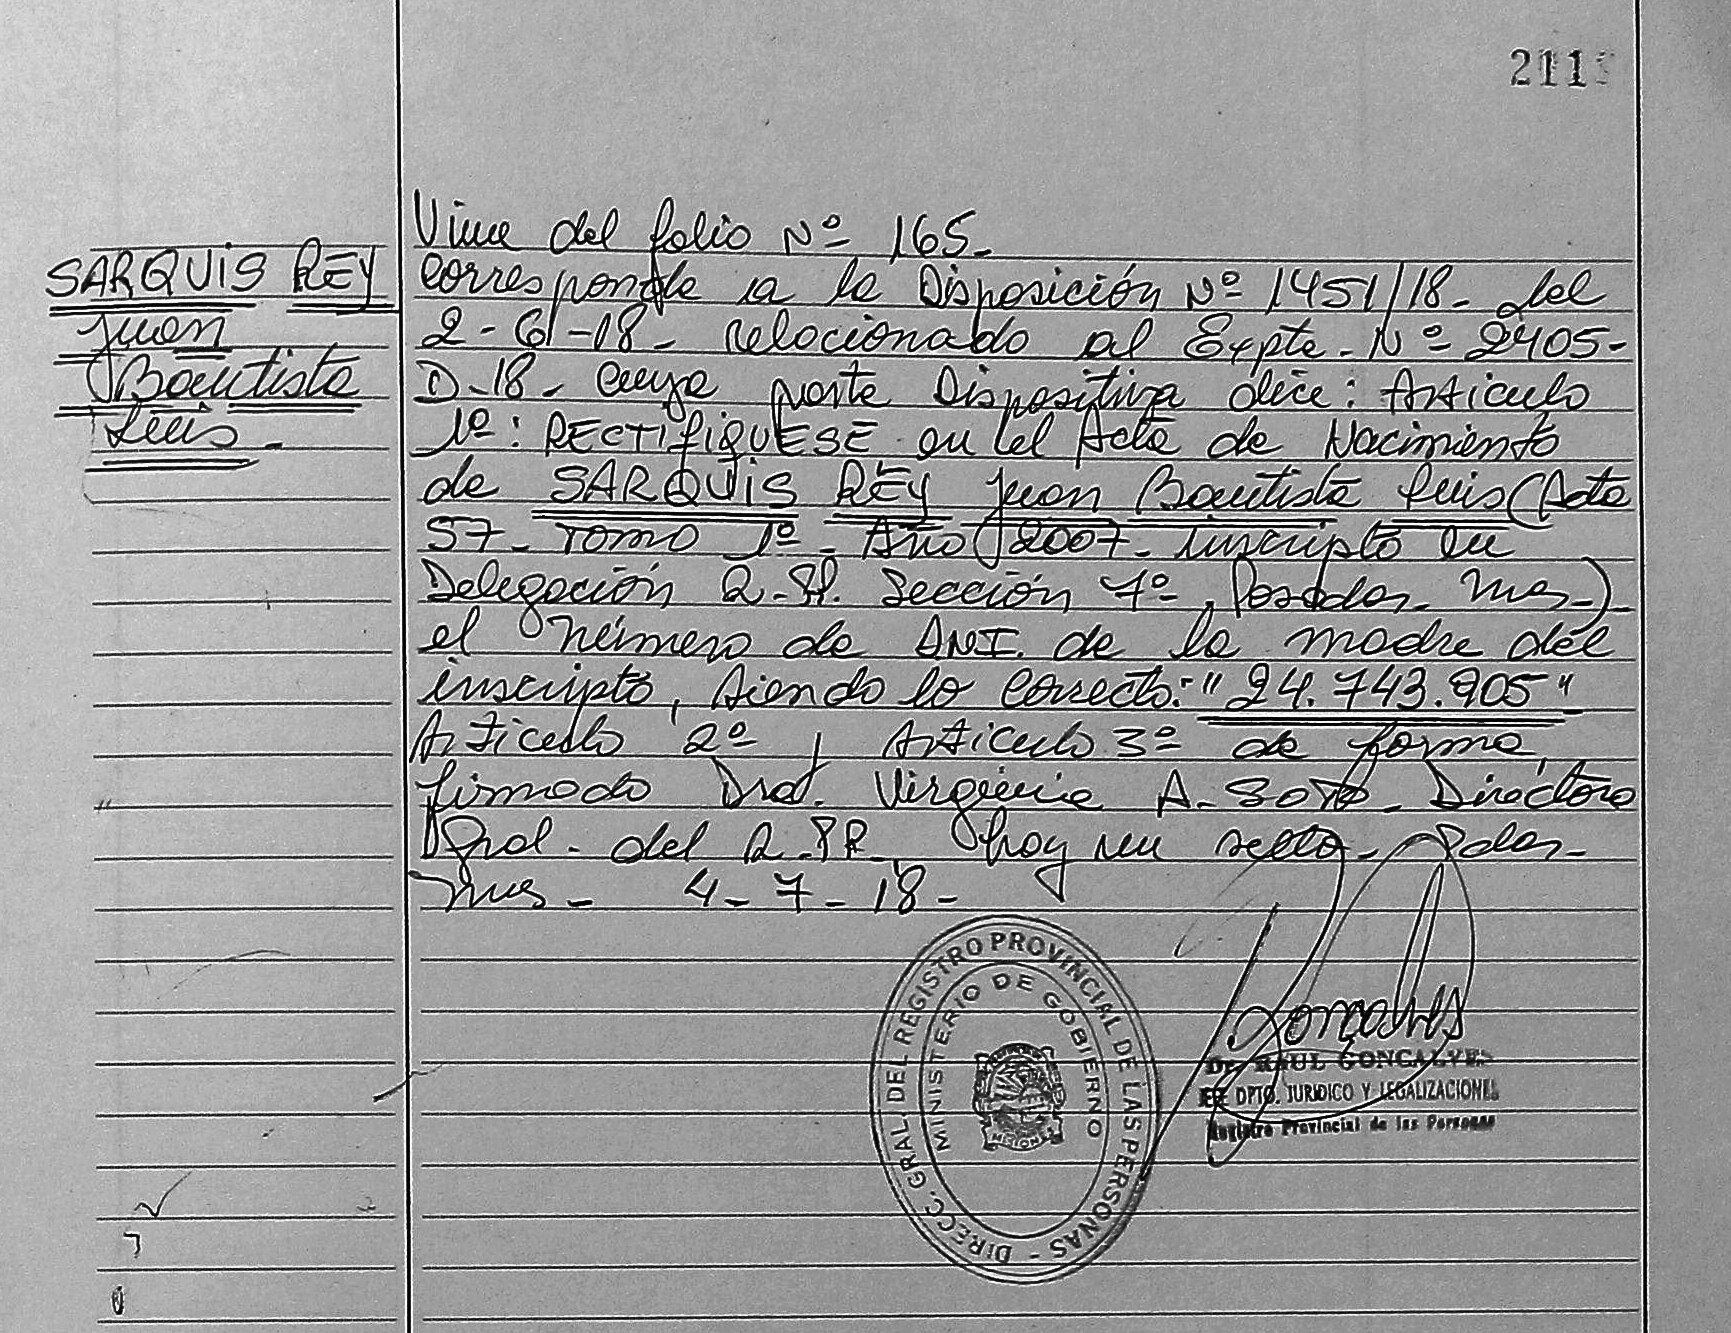 211
SARQUIS REY
Juan
Bautista
Luis.-
Viene del folio Nº 165.-
corresponde a la Disposición Nº 1451/18- del
2-6-18- relacionado al Expte. Nº 2405-
D-18- cuya parte Dispositiva dice: Articulo
1º: RECTIFIQUESE en el Acta de Nacimiento
de SARQUIS REY Juan Bautista Luis (Acta
57- Tomo 1º- Año 2007- inscripto en
Delegación R.P. Sección 7º- Posadas- Mnes-)
el número de DNI. de la madre del
inscripto, siendo lo correcto: "24.743.905"
Articulo 2º, Articulo 3º de forma,
firmado Dra. Virginia A. SOTO- Directora
Gral. del R.P.P. hay un sello- Pdas-
Mnes- 4-7-18-
DIRECC. GRAL. DEL REGISTRO PROVINCIAL DE LAS PERSONAS -
MINISTERIO DE GOBIERNO
MISIONES
Goncalves
Dr. RAUL GONCALVES
DPTO. JURIDICO Y LEGALIZACIONES
Registro Provincial de las Personas